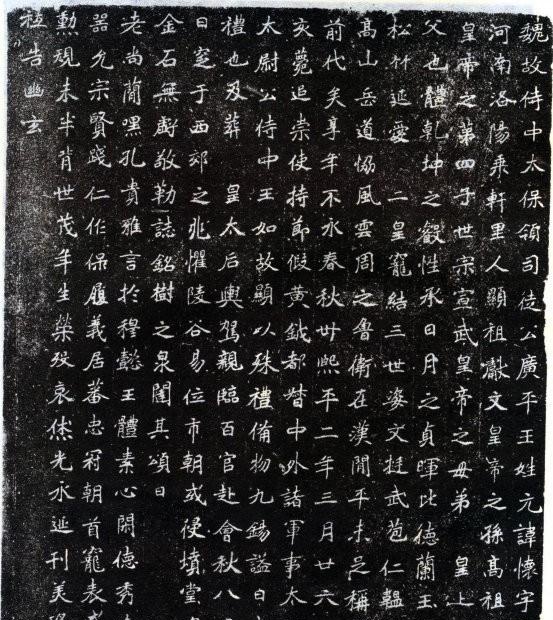 魏故侍中太保領司徒公廣平王姓元諱懷字
河南洛陽乘軒里人顯祖獻文皇帝之孫高祖
皇帝之第四子世宗宣武皇帝之母弟 皇上
父也體乾坤之叡性承日月之貞暉比德蘭玉
松竹延愛二皇寵結三世姿文挺武苞仁韞
高山岳道協風雲周之魯衛在漢閒平未足稱
前代矣享年不永春秋卅熙平二年三月廿六
亥薨追崇使持節假黃鉞都督中外諸軍事太
太尉公侍中王如故顯以殊禮備物九錫謚曰
禮也及葬 皇太后輿駕親臨百官赴會秋八
日窆于西郊之兆懼陵谷易位市朝或侵墳堂
金石無虧敬勒誌銘樹之泉闥其頌曰
老尚簡嘿孔貴雅言於穆懿王體素心閑德秀
器允宗賢踐仁作保履義居蕃忠冠朝首寵表
勳規未半背世茂年生榮歿哀休光永延刊美
祗告幽玄